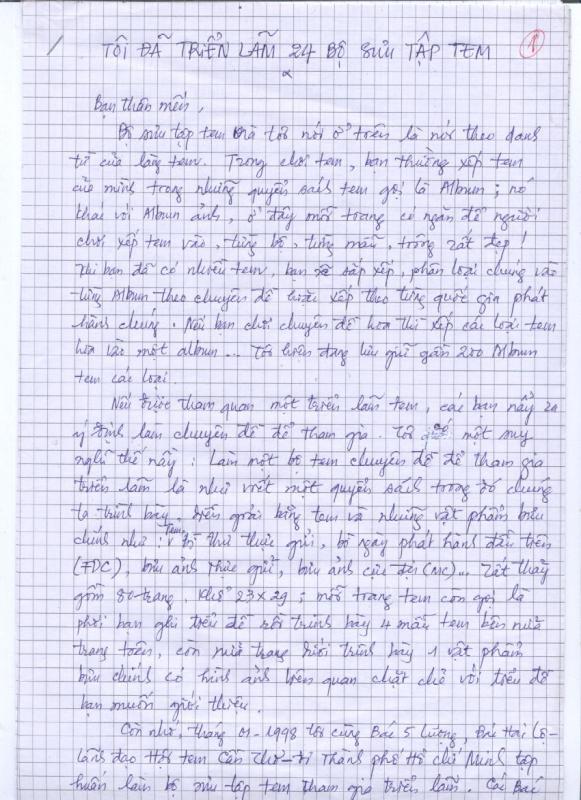 TÔI ĐÃ TRIỂN LÃM 24 BỘ SƯU TẬP TEM
1
Bạn thân mến,
Bộ sưu tập tem mà tôi nói ở trên là nói theo danh
từ của làng tem. Trong chơi tem, bạn thường xếp tem
của mình trong những quyển sách tem gọi là Album; nó
khác với Album ảnh, ở đây mỗi trang có ngăn để người
chơi xếp tem vào, từng bộ, từng mẫu, trông rất đẹp!
Khi bạn đã có nhiều tem, bạn sẽ sắp xếp, phân loại chúng vào
từng Album theo chuyên đề hoặc xếp theo từng quốc gia phát
hành chúng. Nếu bạn chơi chuyên đề hoa thì xếp các loại tem
hoa vào một album... Tôi hiện đang lưu giữ gần 200 Album
tem các loại.
Nếu được tham quan một triển lãm tem, các bạn nảy ra
ý định làm chuyên đề để tham gia. Tôi một suy
nghĩ thế này: Làm một bộ tem chuyên đề để tham gia
triển lãm là như viết một quyển sách trong đó chúng
ta trình bày, diễn giải bằng tem và những vật phẩm bưu
chính như: Tem, bì thư thực gửi, bì ngày phát hành đầu tiên
(FDC), bưu ảnh thực gửi, bưu ảnh cực đại (MC)... Tất thảy
gồm 80 trang. Khổ 23x29; mỗi trang tem còn gọi là
phơi bạn ghi tiêu đề rồi trình bày 4 mẫu tem bên nửa
trang trên, còn nửa trang dưới trình bày 1 vật phẩm
bưu chính có hình ảnh liên quan chặt chẽ với tiêu đề
bạn muốn giới thiệu.
Còn nhớ, tháng 01-1998 tôi cùng Bác 5 Lương, Bác Hai Lộ-
Lãnh đạo Hội tem Cần Thơ - đi Thành phố Hồ Chí Minh tập
huấn làm bộ sưu tập tem tham gia triển lãm. Các Bác